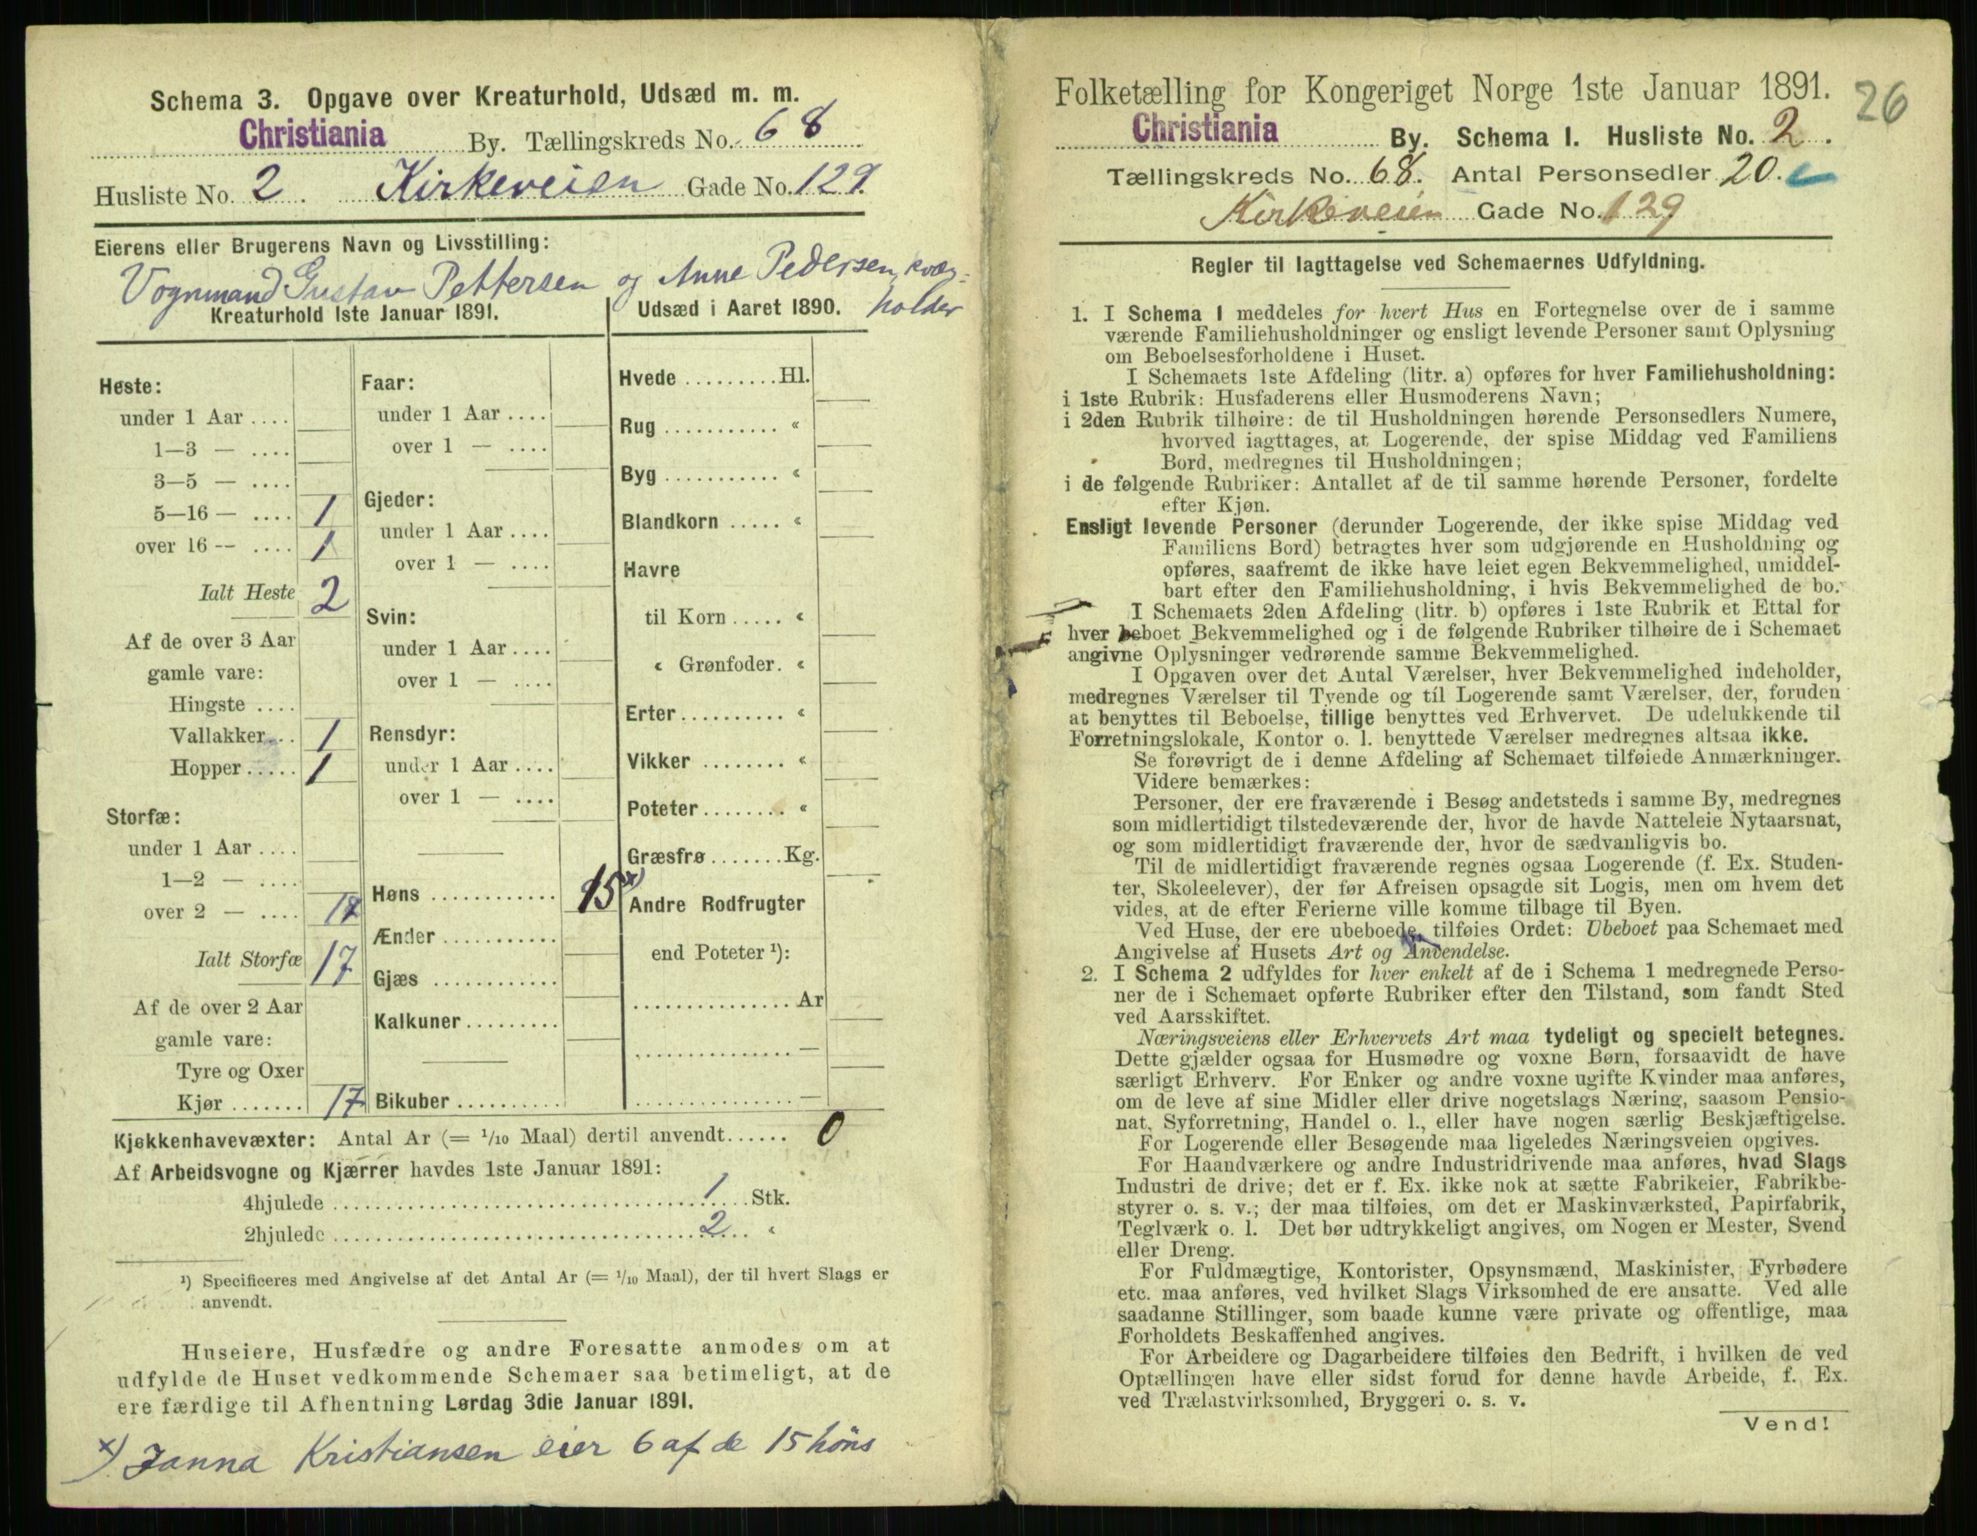 Schema 3. Opgave over Kreaturhold, Udsæd m. m.
Christiania By. Tællingskreds No. 68
Husliste No. 2. Kirkeveien Gade No. 129
Eierens eller Brugerens Navn og Livsstilling:
Vognmand Gustav Pettersen og Anne Pedersen, kvæg-
holder
Kreaturhold 1ste Januar 1891.
Heste:
under 1 Aar ....
1—3 — ....
3—5 — ....
5—16 — .... 1
over 16 — .... 1
Ialt Heste 2
Af de over 3 Aar
gamle vare:
Hingste ....
Vallakker... 1
Hopper..... 1
Storfæ:
under 1 Aar ....
1—2 — ....
over 2 — .... 17
Ialt Storfæ 17
Af de over 2 Aar
gamle vare:
Tyre og Oxer
Kjør ....... 17
Faar:
under 1 Aar ....
over 1 — ....
Gjeder:
under 1 Aar ....
over 1 — ....
Svin:
under 1 Aar ....
over 1 — ....
Rensdyr:
under 1 Aar ....
over 1 — ....
Høns ............ 15 x)
Ænder ...........
Gjæs ............
Kalkuner.........
Bikuber ..........
Udsæd i Aaret 1890.
Hvede .........Hl.
Rug ........... «
Byg ........... «
Blandkorn ..... «
Havre
til Korn ..... «
« Grønfoder. «
Erter.......... «
Vikker ........ «
Poteter........ «
Græsfrø .......Kg.
Andre Rodfrugter
end Poteter ¹):
............... Ar
............... —
............... —
Kjøkkenhavevæxter: Antal Ar (= 1/10 Maal) dertil anvendt...... 0
Af Arbeidsvogne og Kjærrer havdes 1ste Januar 1891:
4hjulede .................... 1 .... Stk.
2hjulede .................... 2 .... «
¹) Specificeres med Angivelse af det Antal Ar (= 1/10 Maal), der til hvert Slags er
anvendt.
Huseiere, Husfædre og andre Foresatte anmodes om at
udfylde de Huset vedkommende Schemaer saa betimeligt, at de
ere færdige til Afhentning Lørdag 3die Januar 1891.
x) Janna Kristiansen eier 6 af de 15 höns
Folketælling for Kongeriget Norge 1ste Januar 1891. 26
Christiania By. Schema I. Husliste No. 2.
Tællingskreds No. 68. Antal Personsedler 20.
Kirkeveien Gade No. 129
Regler til Iagttagelse ved Schemaernes Udfyldning.
1. I Schema I meddeles for hvert Hus en Fortegnelse over de i samme
værende Familiehusholdninger og ensligt levende Personer samt Oplysning
om Beboelsesforholdene i Huset.
I Schemaets 1ste Afdeling (litr. a) opføres for hver Familiehusholdning:
i 1ste Rubrik: Husfaderens eller Husmoderens Navn;
i 2den Rubrik tilhøire: de til Husholdningen hørende Personsedlers Numere,
hvorved iagttages, at Logerende, der spise Middag ved Familiens
Bord, medregnes til Husholdningen;
i de følgende Rubriker: Antallet af de til samme hørende Personer, fordelte
efter Kjøn.
Ensligt levende Personer (derunder Logerende, der ikke spise Middag ved
Familiens Bord) betragtes hver som udgjørende en Husholdning og
opføres, saafremt de ikke have leiet egen Bekvemmelighed, umiddel-
bart efter den Familiehusholdning, i hvis Bekvemmelighed de bo.
I Schemaets 2den Afdeling (litr. b) opføres i 1ste Rubrik et Ettal for
hver beboet Bekvemmelighed og i de følgende Rubriker tilhøire de i Schemaet
angivne Oplysninger vedrørende samme Bekvemmelighed.
I Opgaven over det Antal Værelser, hver Bekvemmelighed indeholder,
medregnes Værelser til Tyende og til Logerende samt Værelser, der, foruden
at benyttes til Beboelse, tillige benyttes ved Erhvervet. De udelukkende til
Forretningslokale, Kontor o. l. benyttede Værelser medregnes altsaa ikke.
Se forøvrigt de i denne Afdeling af Schemaet tilføiede Anmærkninger.
Videre bemærkes:
Personer, der ere fraværende i Besøg andetsteds i samme By, medregnes
som midlertidigt tilstedeværende der, hvor de havde Natteleie Nytaarsnat,
og som midlertidigt fraværende der, hvor de sædvanligvis bo.
Til de midlertidigt fraværende regnes ogsaa Logerende (f. Ex. Studen-
ter, Skoleelever), der før Afreisen opsagde sit Logis, men om hvem det
vides, at de efter Ferierne ville komme tilbage til Byen.
Ved Huse, der ere ubeboede, tilføies Ordet: Ubeboet paa Schemaet med
Angivelse af Husets Art og Anvendelse.
2. I Schema 2 udfyldes for hver enkelt af de i Schema 1 medregnede Perso-
ner de i Schemaet opførte Rubriker efter den Tilstand, som fandt Sted
ved Aarsskiftet.
Næringsveiens eller Erhvervets Art maa tydeligt og specielt betegnes.
Dette gjælder ogsaa for Husmødre og voxne Børn, forsaavidt de have
særligt Erhverv. For Enker og andre voxne ugifte Kvinder maa anføres,
om de leve af sine Midler eller drive nogetslags Næring, saasom Pensio-
nat, Syforretning, Handel o. l., eller have nogen særlig Beskjæftigelse.
For Logerende eller Besøgende maa ligeledes Næringsveien opgives.
For Haandværkere og andre Industridrivende maa anføres, hvad Slags
Industri de drive; det er f. Ex. ikke nok at sætte Fabrikeier, Fabrikbe-
styrer o. s. v.; der maa tilføies, om det er Maskinværksted, Papirfabrik,
Teglværk o. l. Det bør udtrykkeligt angives, om Nogen er Mester, Svend
eller Dreng.
For Fuldmægtige, Kontorister, Opsynsmænd, Maskinister, Fyrbødere
etc. maa anføres, ved hvilket Slags Virksomhed de ere ansatte. Ved alle
saadanne Stillinger, som baade kunne være private og offentlige, maa
Forholdets Beskaffenhed angives.
For Arbeidere og Dagarbeidere tilføies den Bedrift, i hvilken de ved
Optællingen have eller sidst forud for denne havde Arbeide, f. Ex.
ved Trælastvirksomhed, Bryggeri o. s. v.
Vend!